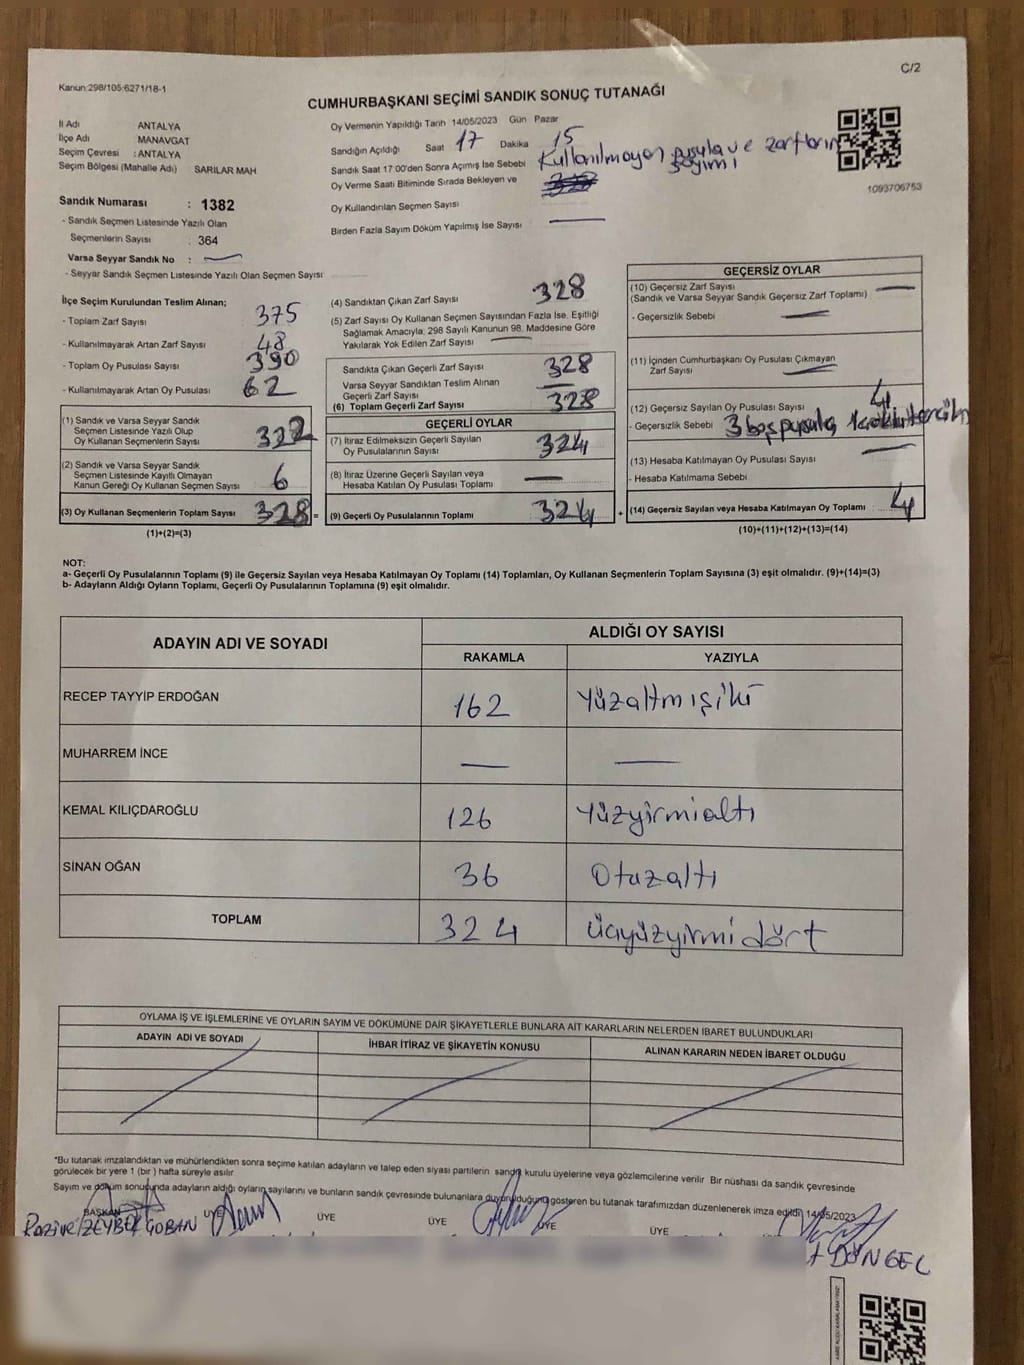 Kanun:298/105:6271/18-1
C/2
CUMHURBAŞKANI SEÇİMİ SANDIK SONUÇ TUTANAĞI
İl Adı ANTALYA
İlçe Adı MANAVGAT
Seçim Çevresi : ANTALYA
Seçim Bölgesi (Mahalle Adı) SARILAR MAH
Sandık Numarası : 1382
- Sandık Seçmen Listesinde Yazılı Olan
Seçmenlerin Sayısı : 364
Varsa Seyyar Sandık No :
- Seyyar Sandık Seçmen Listesinde Yazılı Olan Seçmen Sayısı
Oy Vermenin Yapıldığı Tarih 14/05/2023 Gün Pazar
Sandığın Açıldığı Saat 17 Dakika 15
Sandık Saat 17:00'den Sonra Açımış İse Sebebi Kullanılmayan pusula ve zarfların sayımı
Oy Verme Saati Bitiminde Sırada Bekleyen ve
Oy Kullandırılan Seçmen Sayısı
Birden Fazla Sayım Döküm Yapılmış İse Sayısı —
1093706753
İlçe Seçim Kurulundan Teslim Alınan;
- Toplam Zarf Sayısı 375
- Kullanılmayarak Artan Zarf Sayısı 48
- Toplam Oy Pusulası Sayısı 390
- Kullanılmayarak Artan Oy Pusulası 62
(1) Sandık ve Varsa Seyyar Sandık
Seçmen Listesinde Yazılı Olup
Oy Kullanan Seçmenlerin Sayısı 322
(2) Sandık ve Varsa Seyyar Sandık
Seçmen Listesinde Kayıtlı Olmayan
Kanun Gereği Oy Kullanan Seçmen Sayısı 6
(3) Oy Kullanan Seçmenlerin Toplam Sayısı 328 =
(1)+(2)=(3)
(4) Sandıktan Çıkan Zarf Sayısı 328
(5) Zarf Sayısı Oy Kullanan Seçmen Sayısından Fazla İse, Eşitliği
Sağlamak Amacıyla, 298 Sayılı Kanunun 98. Maddesine Göre
Yakılarak Yok Edilen Zarf Sayısı —
Sandıkta Çıkan Geçerli Zarf Sayısı 328
Varsa Seyyar Sandıktan Teslim Alınan
Geçerli Zarf Sayısı —
(6) Toplam Geçerli Zarf Sayısı 328
GEÇERLİ OYLAR
(7) İtiraz Edilmeksizin Geçerli Sayılan
Oy Pusulalarının Sayısı 324
(8) İtiraz Üzerine Geçerli Sayılan veya
Hesaba Katılan Oy Pusulası Toplamı —
(9) Geçerli Oy Pusulalarının Toplamı 324 +
GEÇERSİZ OYLAR
(10) Geçersiz Zarf Sayısı —
(Sandık ve Varsa Seyyar Sandık Geçersiz Zarf Toplamı)
- Geçersizlik Sebebi —
(11) İçinden Cumhurbaşkanı Oy Pusulası Çıkmayan
Zarf Sayısı —
(12) Geçersiz Sayılan Oy Pusulası Sayısı 4
- Geçersizlik Sebebi 3 boş pusula
(13) Hesaba Katılmayan Oy Pusulası Sayısı —
- Hesaba Katılmama Sebebi
(14) Geçersiz Sayılan veya Hesaba Katılmayan Oy Toplamı 4
(10)+(11)+(12)+(13)=(14)
NOT:
a- Geçerli Oy Pusulalarının Toplamı (9) ile Geçersiz Sayılan veya Hesaba Katılmayan Oy Toplamı (14) Toplamları, Oy Kullanan Seçmenlerin Toplam Sayısına (3) eşit olmalıdır. (9)+(14)=(3)
b- Adayların Aldığı Oyların Toplamı, Geçerli Oy Pusulalarının Toplamına (9) eşit olmalıdır.
ADAYIN ADI VE SOYADI ALDIĞI OY SAYISI
RAKAMLA YAZIYLA
RECEP TAYYİP ERDOĞAN 162 Yüzaltmışiki
MUHARREM İNCE — —
KEMAL KILIÇDAROĞLU 126 Yüzyirmialtı
SİNAN OĞAN 36 Otuzaltı
TOPLAM 324 üçyüzyirmidört
OYLAMA İŞ VE İŞLEMLERİNE VE OYLARIN SAYIM VE DÖKÜMÜNE DAİR ŞİKAYETLERLE BUNLARA AİT KARARLARIN NELERDEN İBARET BULUNDUKLARI
ADAYIN ADI VE SOYADI İHBAR İTİRAZ VE ŞİKAYETİN KONUSU ALINAN KARARIN NEDEN İBARET OLDUĞU
*Bu tutanak imzalandıktan ve mühürlendikten sonra seçime katılan adayların ve talep eden siyasi partilerin sandık kurulu üyelerine veya gözlemcilerine verilir Bir nüshası da sandık çevresinde
görülecek bir yere 1 (bir) hafta süreyle asılır.
Sayım ve döküm sonucunda adayların aldığı oyların sayılarını ve bunların sandık çevresinde bulunanlara duyurulduğunu gösteren bu tutanak tarafımızdan düzenlenerek imza edildi. 14/05/2023
BAŞKAN ÜYE ÜYE ÜYE ÜYE ÜYE
ZEYBEK ÇOBAN
DÖNGEL